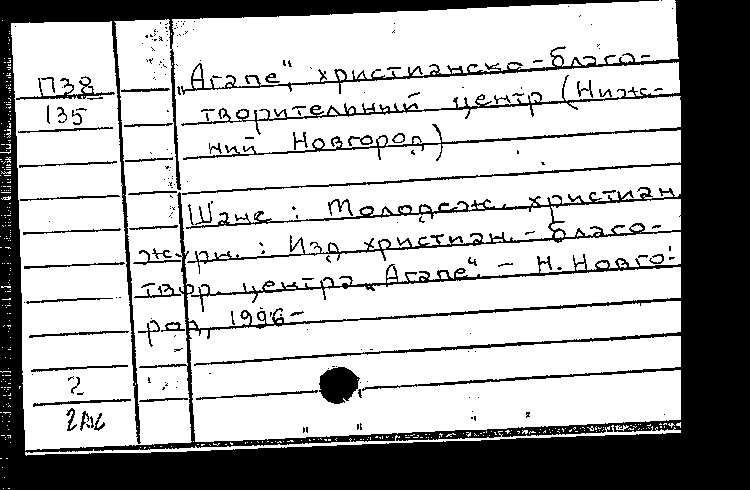 П38
135
„Агапе“, христианско-благо-
творительный центр (Ниж-
ний Новгород)
Шанс : Молодеж. христиан.
журн. : Изд христиан.-благо-
твор. центра „Агапе“. - Н. Новго-
род, 1996-
2